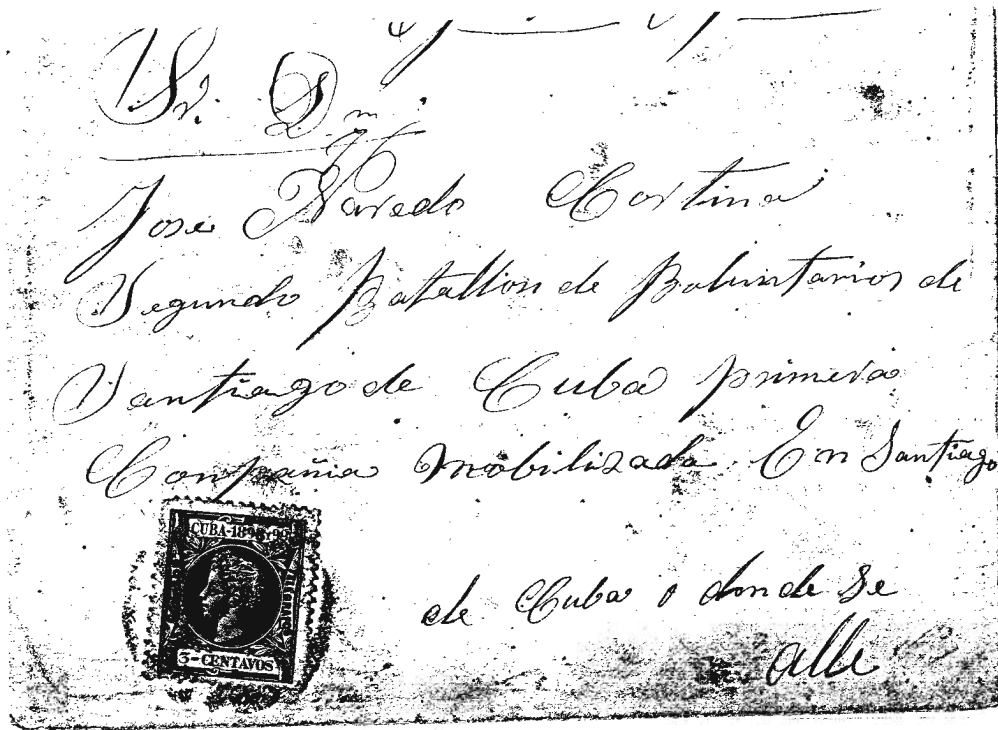 Sr. Dn.
José Naredo Cortina
Segundo Batallion de Boluntarios de
Santiago de Cuba primera
Compañia mobilisada. En Santiago
de Cuba o donde se
alle
CUBA-1898 Y 99
3-CENTAVOS